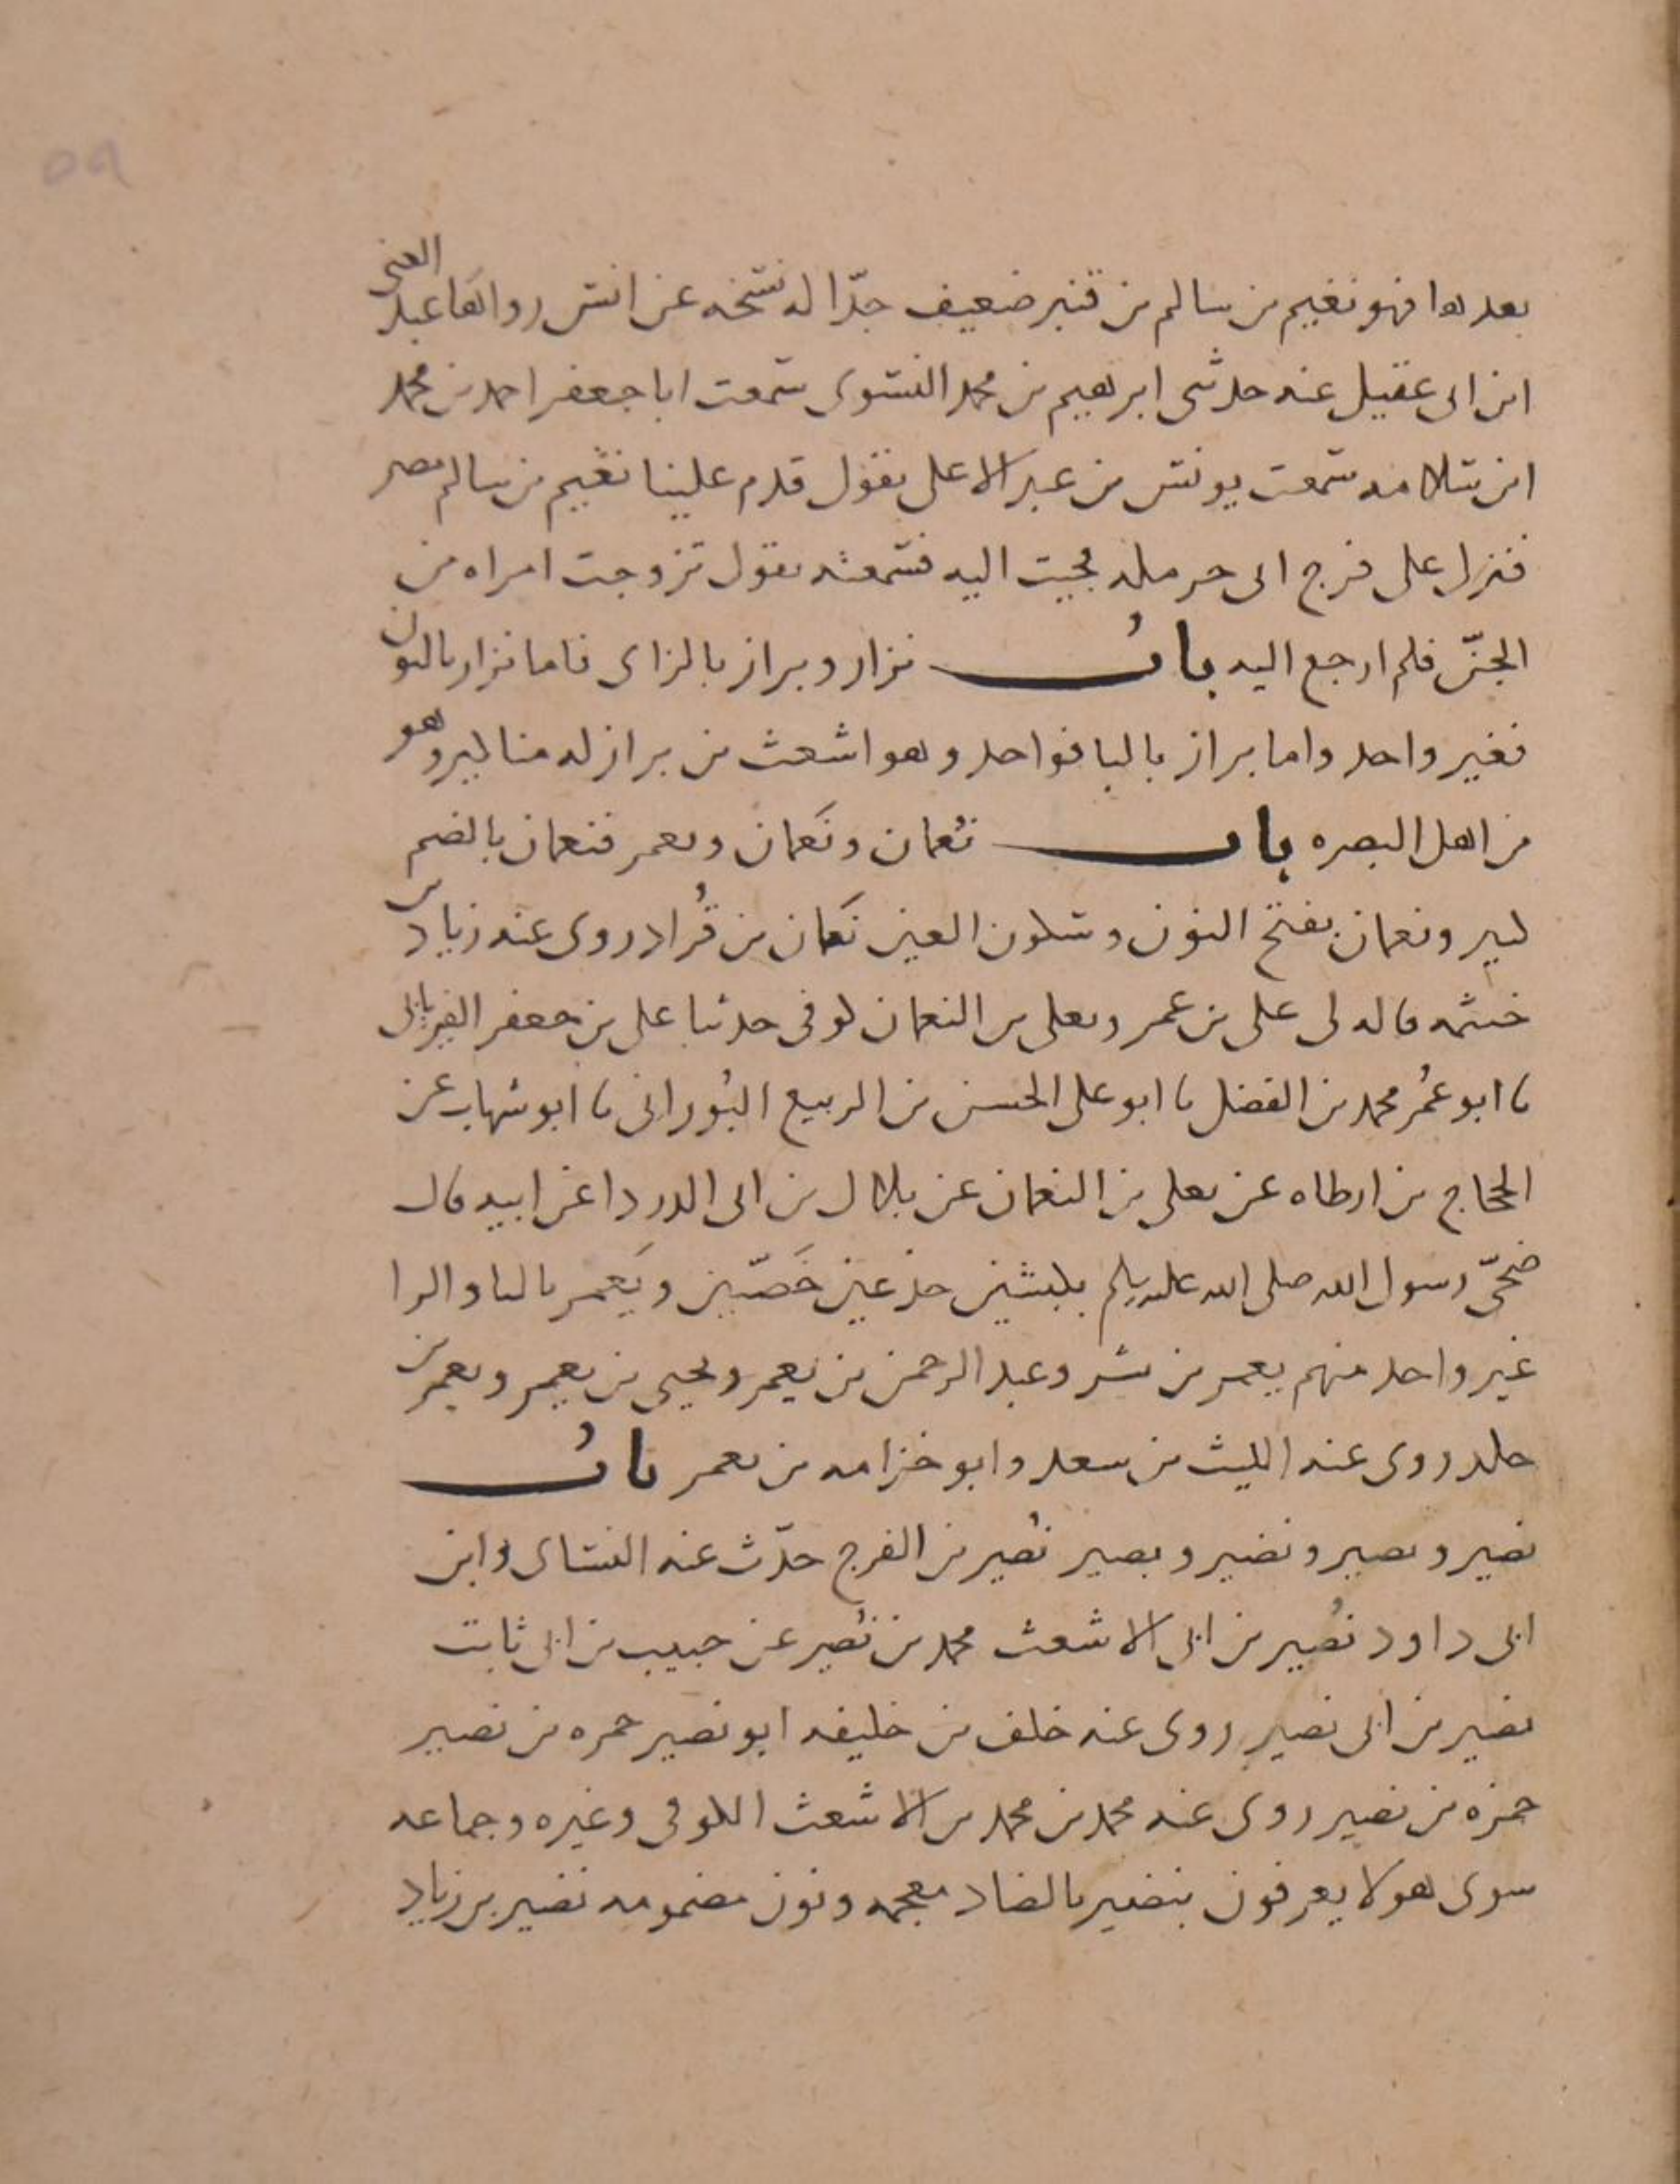 بعدها فهو نغيم بن سالم بن قنبر ضعيف جدّا له نسخه عن انس رواها عبد الغني
ابن ابى عقيل عنه حدثنى ابرهيم بن محمد النسوى سمعت ابا جعفر احمد بن محمد
ابن سلامه سمعت يونس بن عبد الاعلى يقول قدم علينا نغيم بن سالم مصر
فنزل على فرج ابى حرمله فجيت اليه فسمعته يقول تزوجت امراه من
الجنّ فلم ارجع اليه باب نزار وبراز بالزاى فاما نزار بالنون
فغير واحد واما براز بالبا فواحد وهو اشعث بن براز له مناكير وهو
من اهل البصره باب نُعمان ونَعمان ويعمر فنعمان بالضم
كثير ونعمان بفتح النون وسكون العين نَعمان بن قُراد روى عنه زياد بن
خيثمه قاله لى على بن عمر ويعلى بن النعمان كوفى حدثنا على بن جعفر الفريابى
نا ابو عُمر محمد بن الفضل نا ابو على الحسن بن الربيع البُورانى نا ابو شهاب عن
الحجاج بن ارطاه عن يعلى بن النعمان عن بلال بن ابى الدردا عن ابيه قال
ضحّى رسول الله صلى الله عليه وسلم بكبشين جذعين خَصيّين ويَعمر باليا والرا
غير واحد منهم يعمر بن بشر وعبد الرحمن بن يعمر ويحيى بن يعمر ويعمر بن
خلد روى عنه الليث بن سعد وابو خزامه بن يعمر باب
نصير ونصير ونضير وبصير نُصير بن الفرج حدّث عنه النساى وابن
ابى داود نُصير بن ابى الاشعث محمد بن نُصير عن حبيب بن ابى ثابت
نصير بن ابى نصير روى عنه خلف بن خليفه ابو نصير حمزه بن نصير
حمزه بن نصير روى عنه محمد بن محمد بن الاشعث الكوفى وغيره وجماعه
سوى هولا يعرفون بنضير بالضاد معجمه ونون مضمومه نضير بن زياد